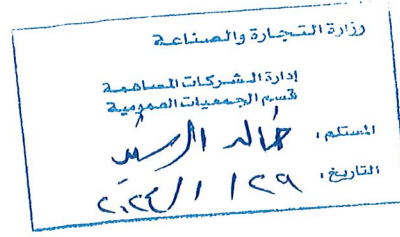 وزارة التجارة والصناعة
إدارة الشركات المساهمة
قسم الجمعيات العمومية
المستلم : خالد الرشيد
التاريخ : ٢٩ / ١ / ٢٠٢٤